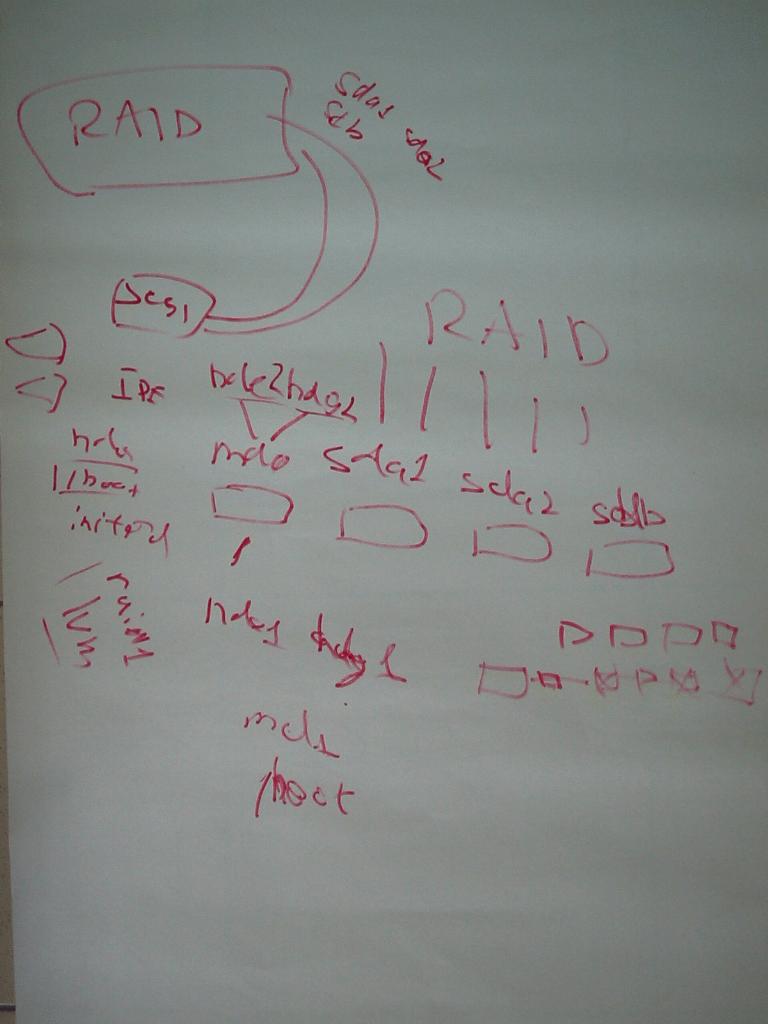 RAID
sda1
sdb sda2
scsi
RAID
IDE hdc2 hda2
hda md0 sda1 sda2 sdb
/boot
initrd
/ raid1
lvm
hdc1
md1
/boot